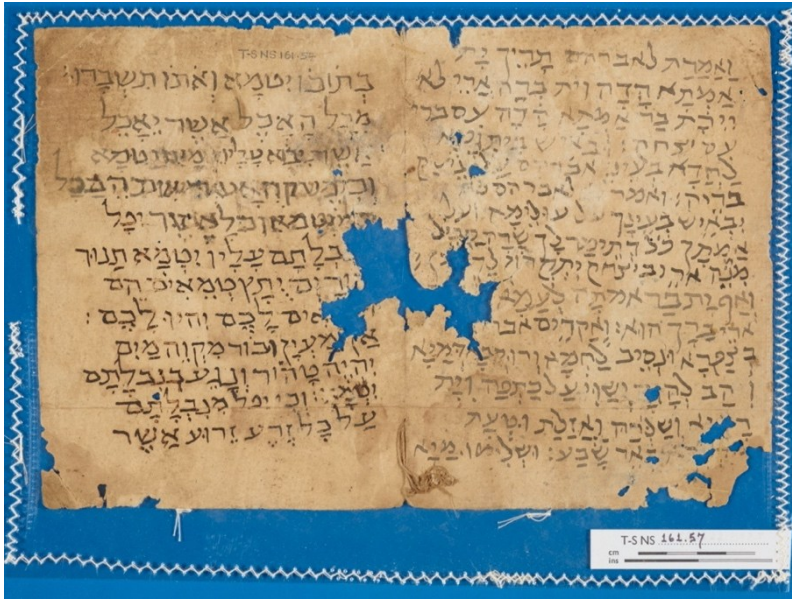 T-S NS 161.57
ואמרת לאברהם תריך ית
אמתא הדה וית ברה ארי לא
יירת בר אמתא הדה עם ברי
עם יצחק: ובאיש
לחדא בעיני אברהם על
בריה: ואמר לאברהם לא
יבאיש בעינך על עולימא ועל
אמתך כל דתימר לך שרה קביל
מנה ארי ביצחק יתקרון
ואף ית בר אמתה לעממא
ארי ברך הוא: ואקדים אבר
בצפרא ונסיב לחמא ורוקבא דמיא
הב להגר ושוי על כתפה וית
ושלחה ואזלת וטעת
באר שבע: ושלימו מיא
בתוכו יטמא ואתו תשברו:
מכל האכל אשר יאכל
אשר יבא עליו מים יטמא
וכל משקה אשר ישתה בכל
יטמא וכל אשר יפל
נבלתם עליו יטמא תנור
וכירים יתץ טמאים הם
אים לכם יהיו לכם:
אך מעין ובור מקוה מים
יהיה טהור ונגע בנבלתם
יטמא: וכי יפל מנבלתם
על כל זרע זרוע אשר
T-S NS 161.57
cm
ins